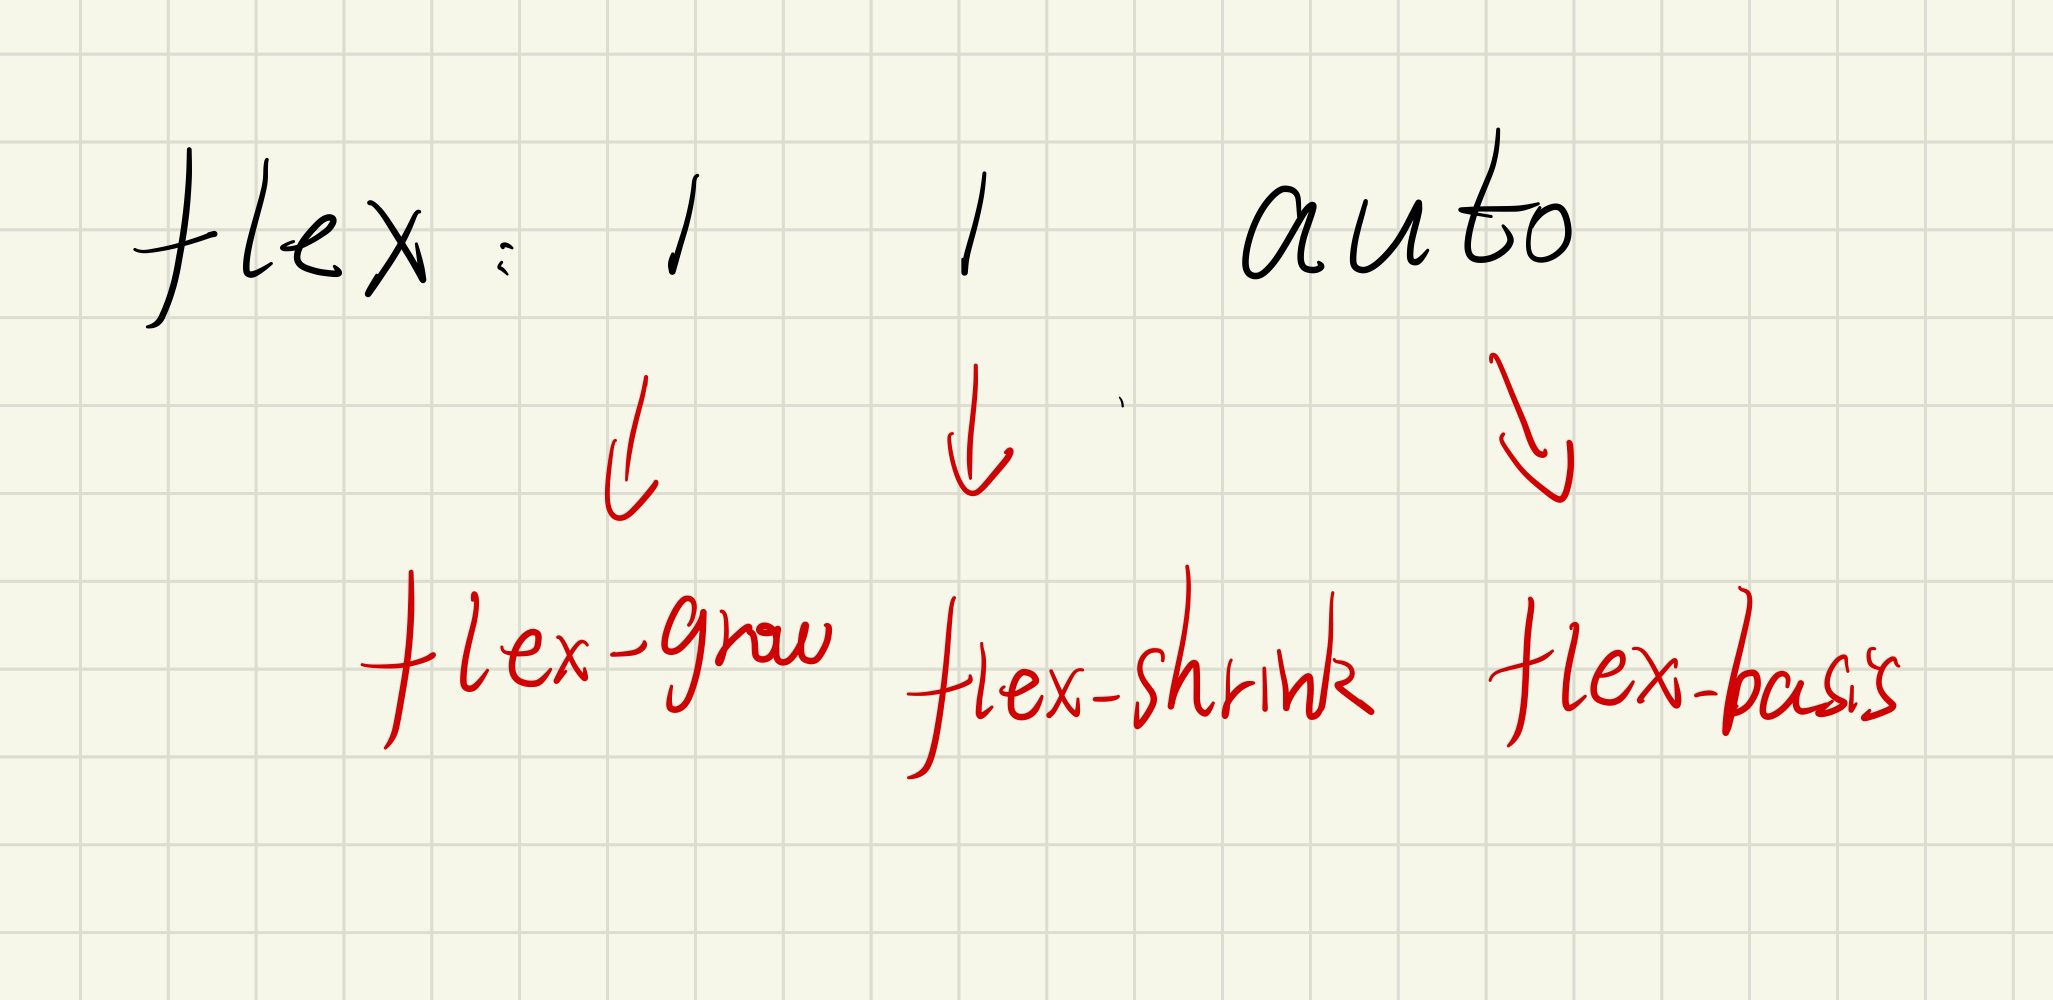 flex: 1 1 auto
flex-grow flex-shrink flex-basis